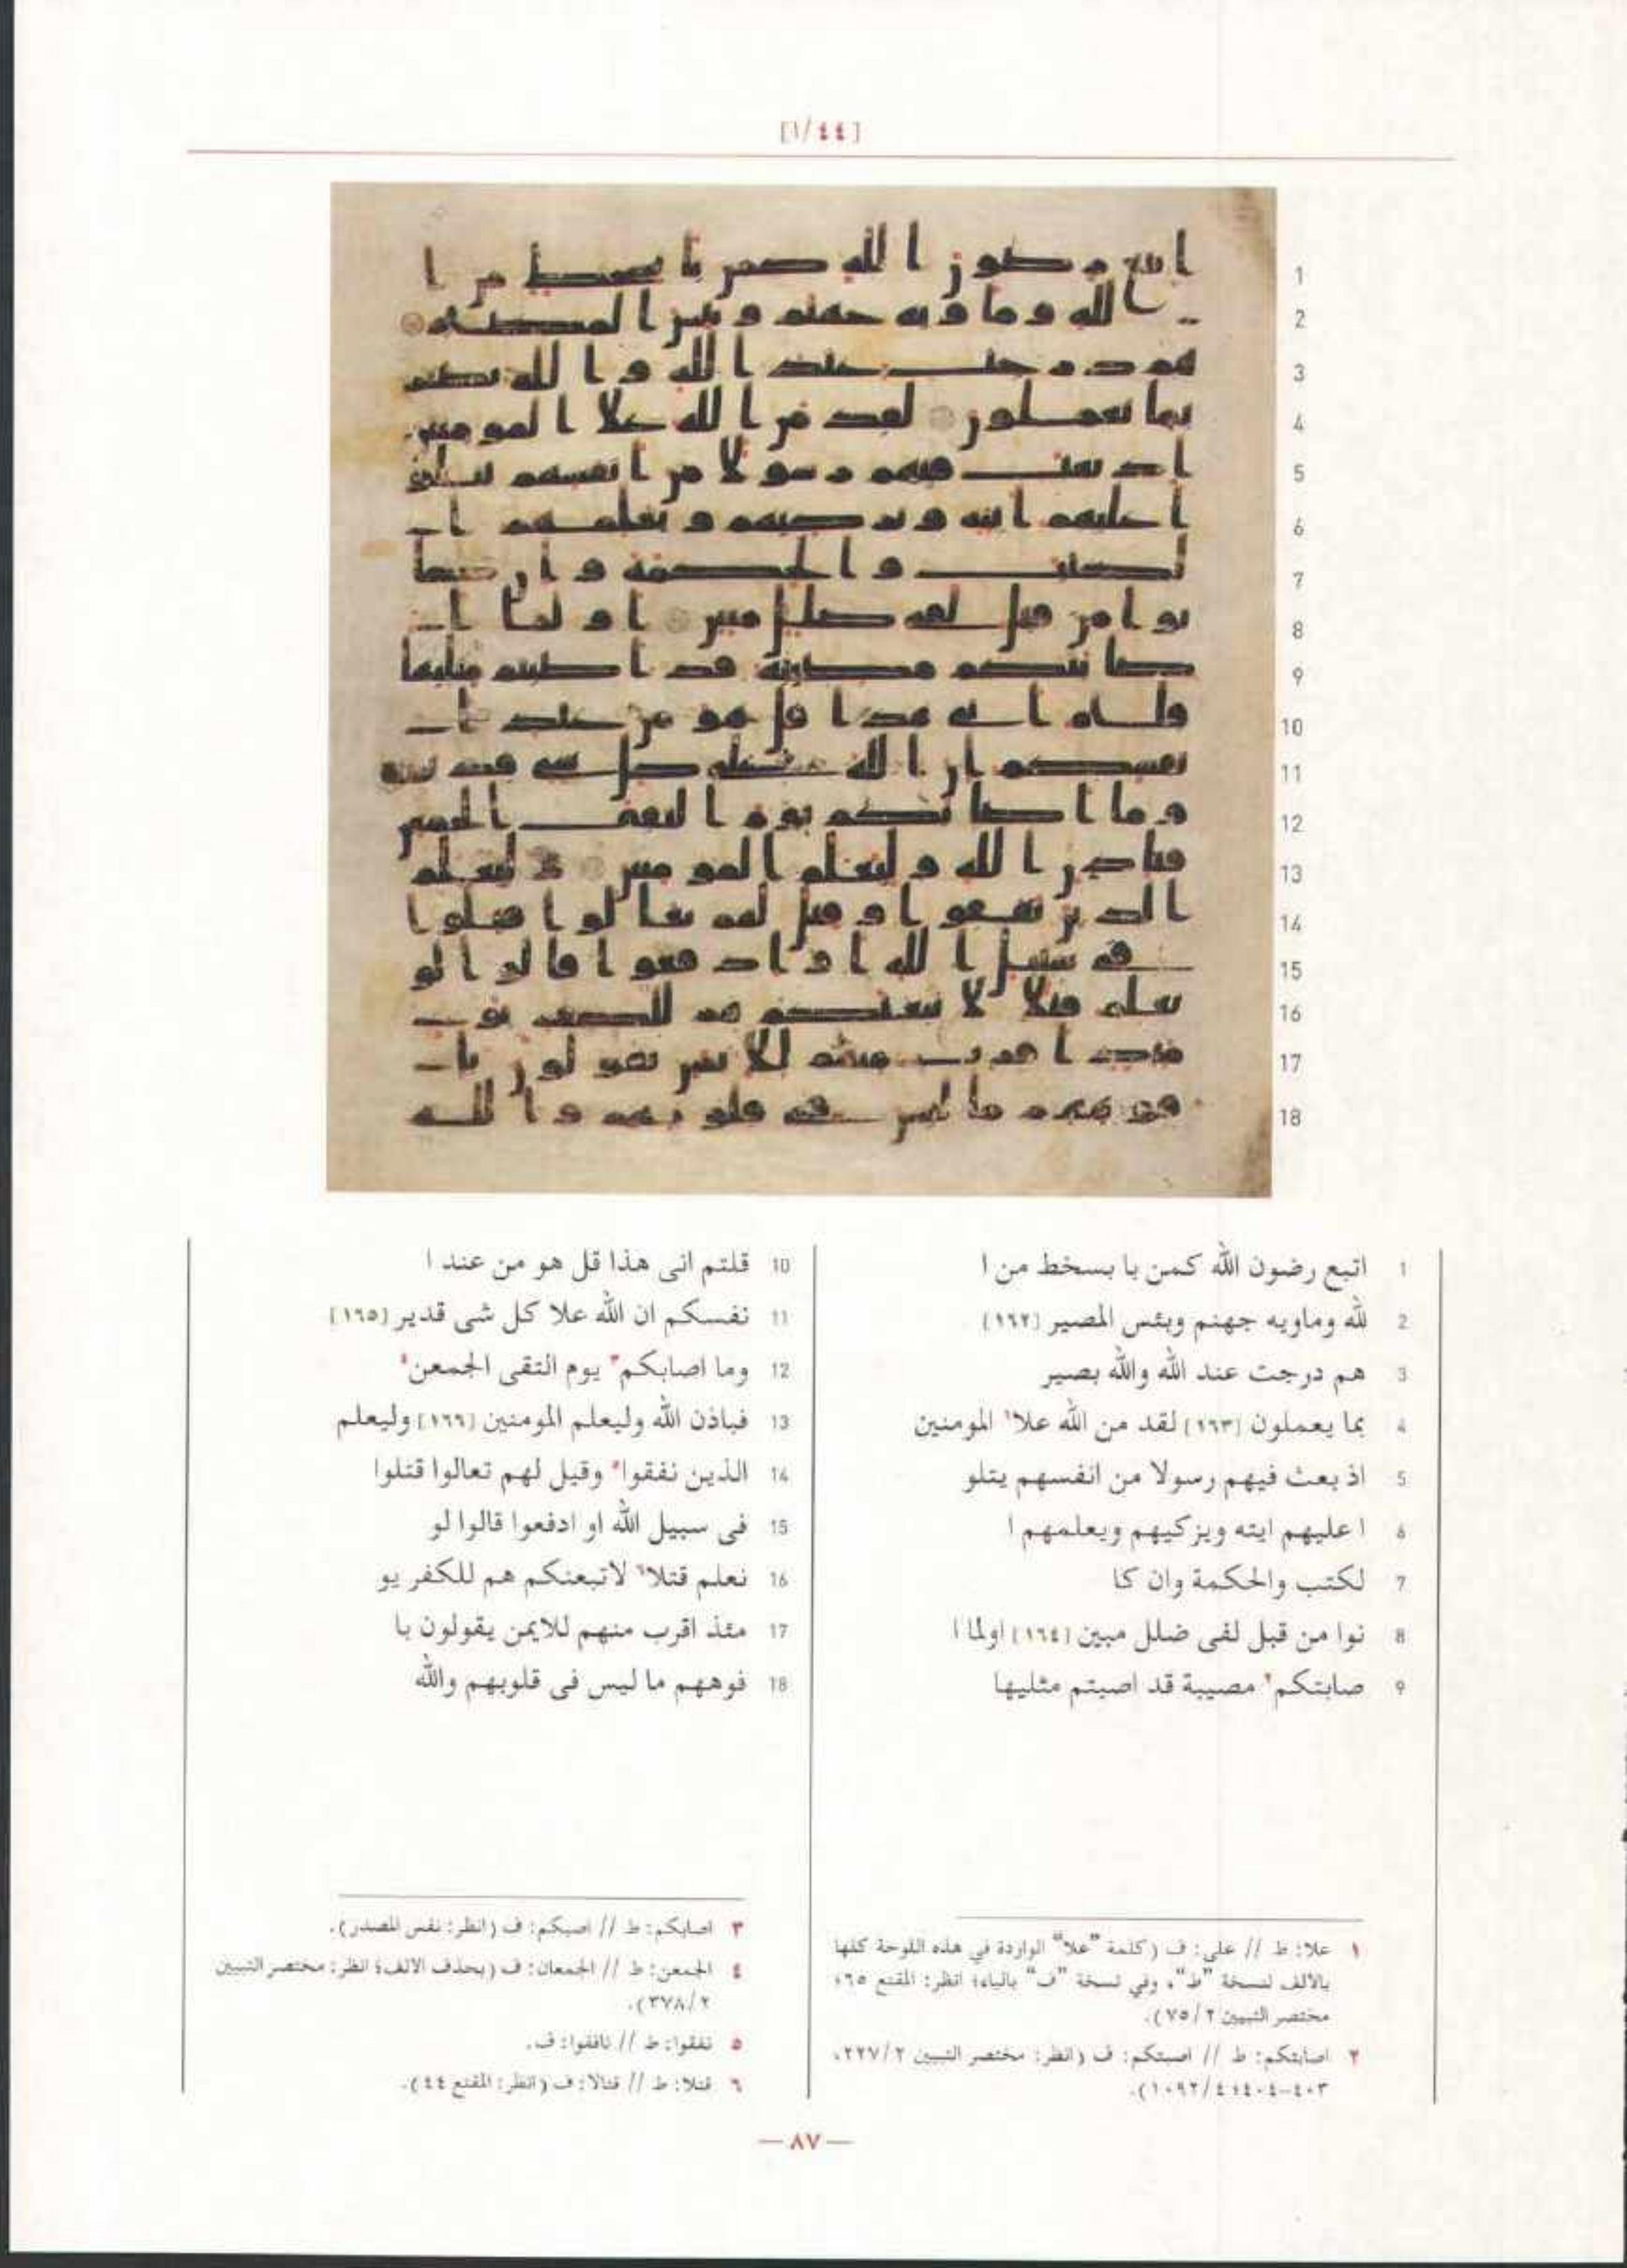 [١/٤٤]
1 اتبع رضون الله كمن با بسخط من ا
2 لله وماويه جهنم وبئس المصير [١٦٢]
3 هم درجت عند الله والله بصير
4 بما يعملون [١٦٣] لقد من الله علا١ المومنين
5 اذ بعث فيهم رسولا من انفسهم يتلو
6 ا عليهم ايته ويزكيهم ويعلمهم ا
7 لكتب والحكمة وان كا
8 نوا من قبل لفى ضلل مبين [١٦٤] اولما ا
9 صابتكم٢ مصيبة قد اصبتم مثليها
10 قلتم انى هذا قل هو من عند ا
11 نفسكم ان الله علا كل شى قدير [١٦٥]
12 وما اصابكم٣ يوم التقى الجمعن٤
13 فباذن الله وليعلم المومنين [١٦٦] وليعلم
14 الذين نفقوا٥ وقيل لهم تعالوا قتلوا
15 فى سبيل الله او ادفعوا قالوا لو
16 نعلم قتلا٦ لاتبعنكم هم للكفر يو
17 مئذ اقرب منهم للايمن يقولون با
18 فوههم ما ليس فى قلوبهم والله
١ علا: ط // على: ف (كلمة "علا" الواردة في هذه اللوحة كلها
بالالف لنسخة "ط"، وفي نسخة "ف" بالياء؛ انظر: المقنع ٦٥؛
مختصر التبيين ٧٥/٢).
٢ اصابتكم: ط // اصبتكم: ف (انظر: مختصر التبيين ٢٢٧/٢،
٤٠٣-٤٠٤؛ ١٠٩٢/٤).
٣ اصابكم: ط // اصبكم: ف (انظر: نفس المصدر).
٤ الجمعن: ط // الجمعان: ف (بحذف الالف؛ انظر: مختصر التبيين
٣٧٨/٢).
٥ نفقوا: ط // نافقوا: ف.
٦ قتلا: ط // قتالا: ف (انظر: المقنع ٤٤).
— ٨٧ —